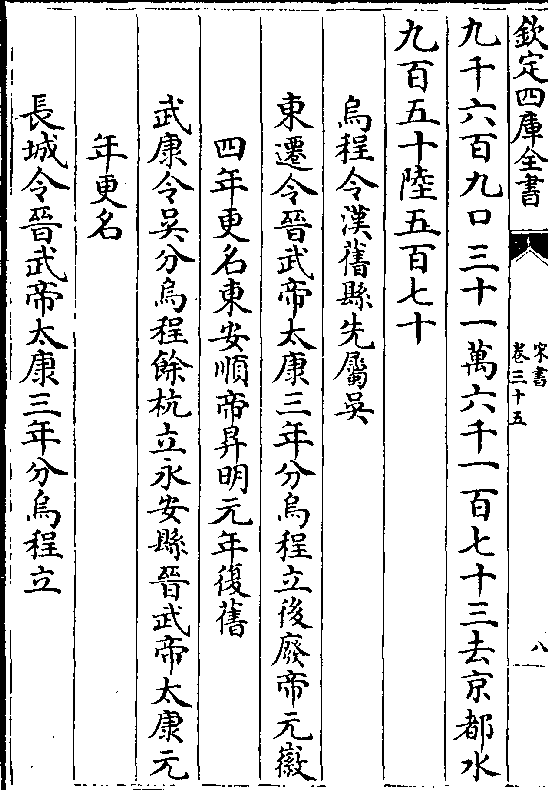 欽定四庫全書
宋書
卷三十五
八
九千六百九口三十一萬六千一百七十三去京都水
九百五十陸五百七十
烏程令漢舊縣先屬吳
東遷令晉武帝太康三年分烏程立後廢帝元徽
四年更名東安順帝昇明元年復舊
武康令吳分烏程餘杭立永安縣晉武帝太康元
年更名
長城令晉武帝太康三年分烏程立